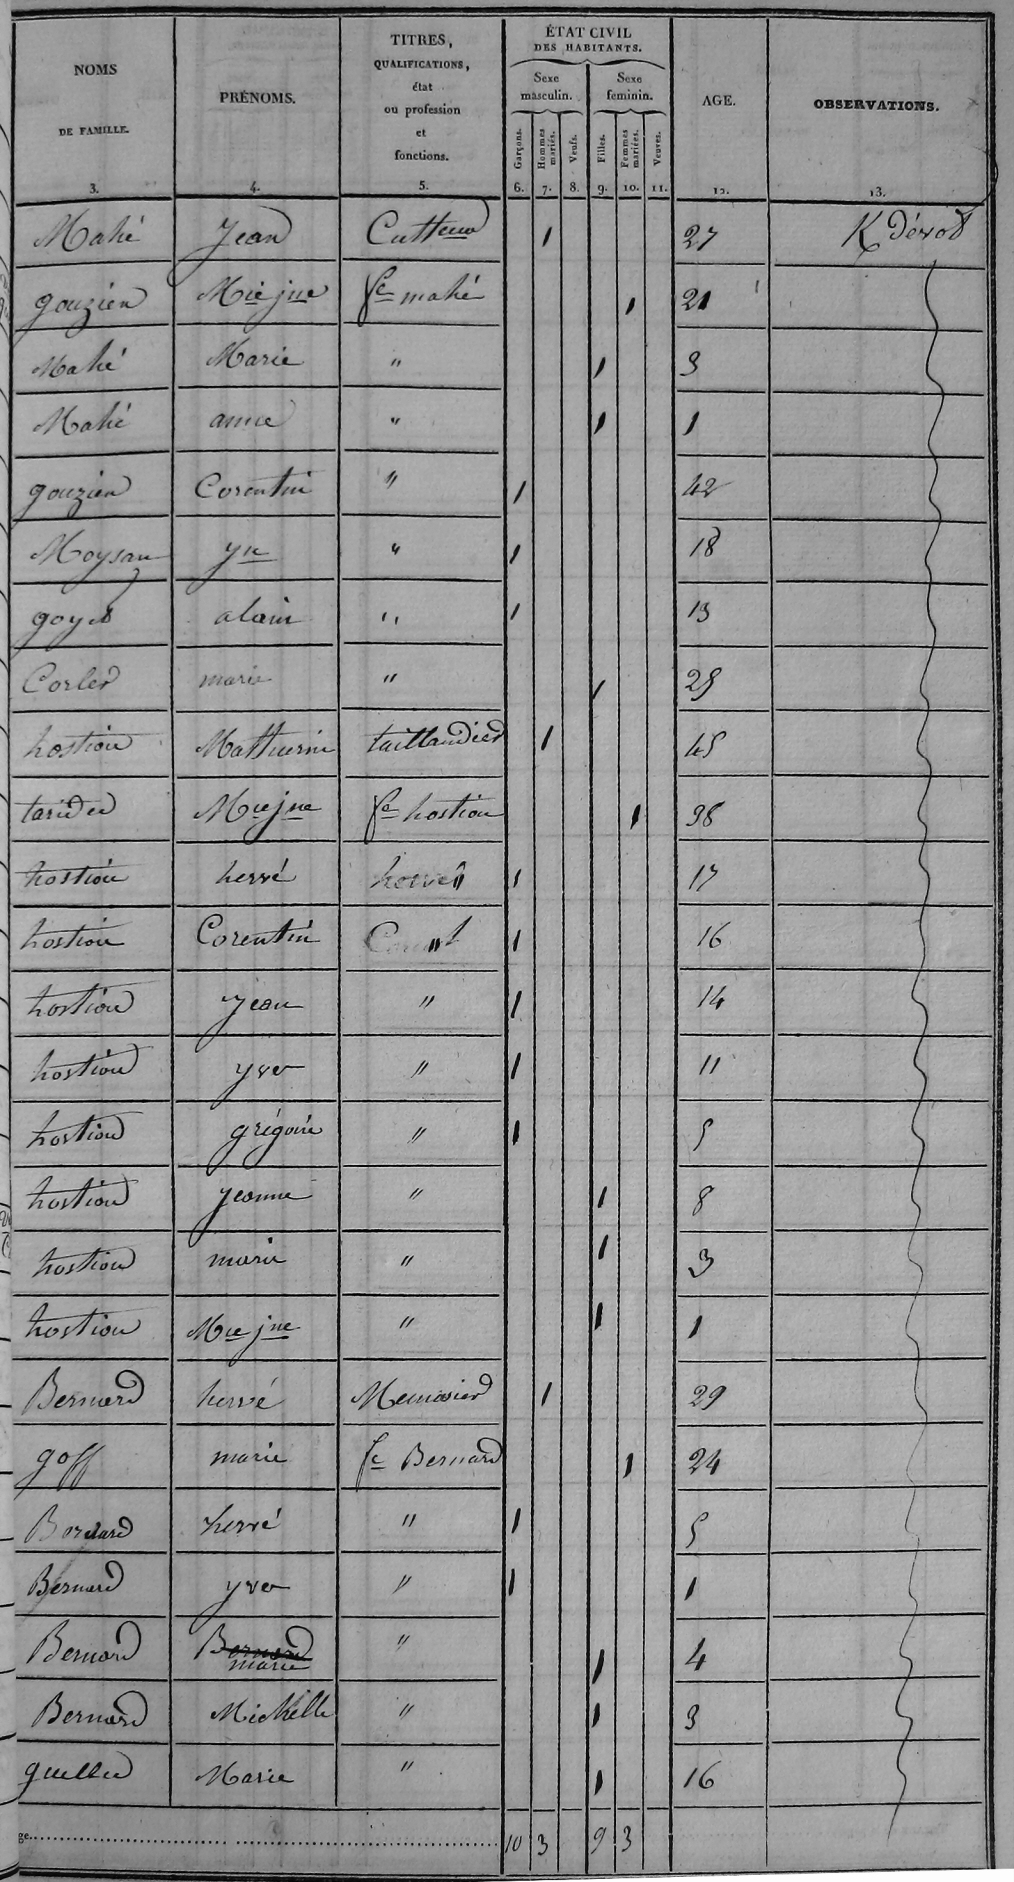 NOMS DE FAMILLE. PRÉNOMS. TITRES, QUALIFICATIONS, état ou profession et fonctions. ÉTAT CIVIL DES HABITANTS. AGE. OBSERVATIONS.
Sexe masculin. Sexe feminin.
Garçons. Hommes mariés. Veufs. Filles. Femmes mariées. Veuves.
3. 4. 5. 6. 7. 8. 9. 10. 11. 12. 13.
Mahé Jean Cultteur 1 27 K Dévot
gouzien Mie jne fe mahé 1 21
Mahé Marie " 1 3
Mahé anne " 1 1
gouzien Corentin " 1 42
Moysan yn " 1 18
goyat alain " 1 13
Corler marie " 1 25
hostiou Mathurin taillandier 1 45
taridec Mie jne fe hostiou 1 38
hostiou hervé " 1 17
hostiou Corentin " 1 16
hostiou Jean " 1 14
hostiou yves " 1 11
hostiou grégoire " 1 5
hostiou jeanne " 1 8
hostiou marie " 1 3
hostiou Mie jne " 1 1
Bernard hervé Menuisier 1 29
goff marie fe Bernard 1 24
Bernard hervé " 1 5
Bernard yves " 1 1
Bernard Bernard marie " 1 4
Bernard Michelle " 1 3
quellec Marie " 1 16
ge. 10 3 9 3